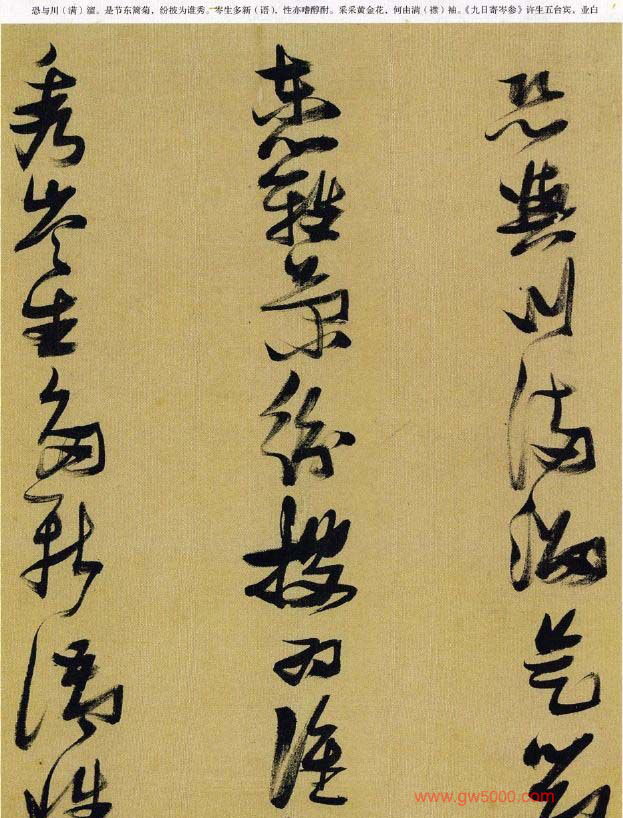 恐与川（满）溜。是节东篱菊，纷披为谁秀。岑生多新（语），性亦嗜醇酎。采采黄金花，何由满（襟）袖。《九日寄岑参》许生五台宾，业白
恐與川滿溜是節
東籬菊紛披为誰
秀岑生多新語性
www.gw5000.com